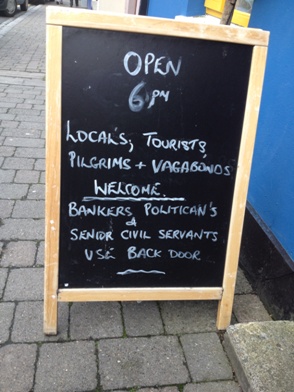 OPEN
6PM
LOCAL'S, TOURISTS,
PILGRIMS + VAGABONDS
WELCOME.
BANKERS POLITICAN'S
&
SENIOR CIVIL SERVANTS
USE BACK DOOR